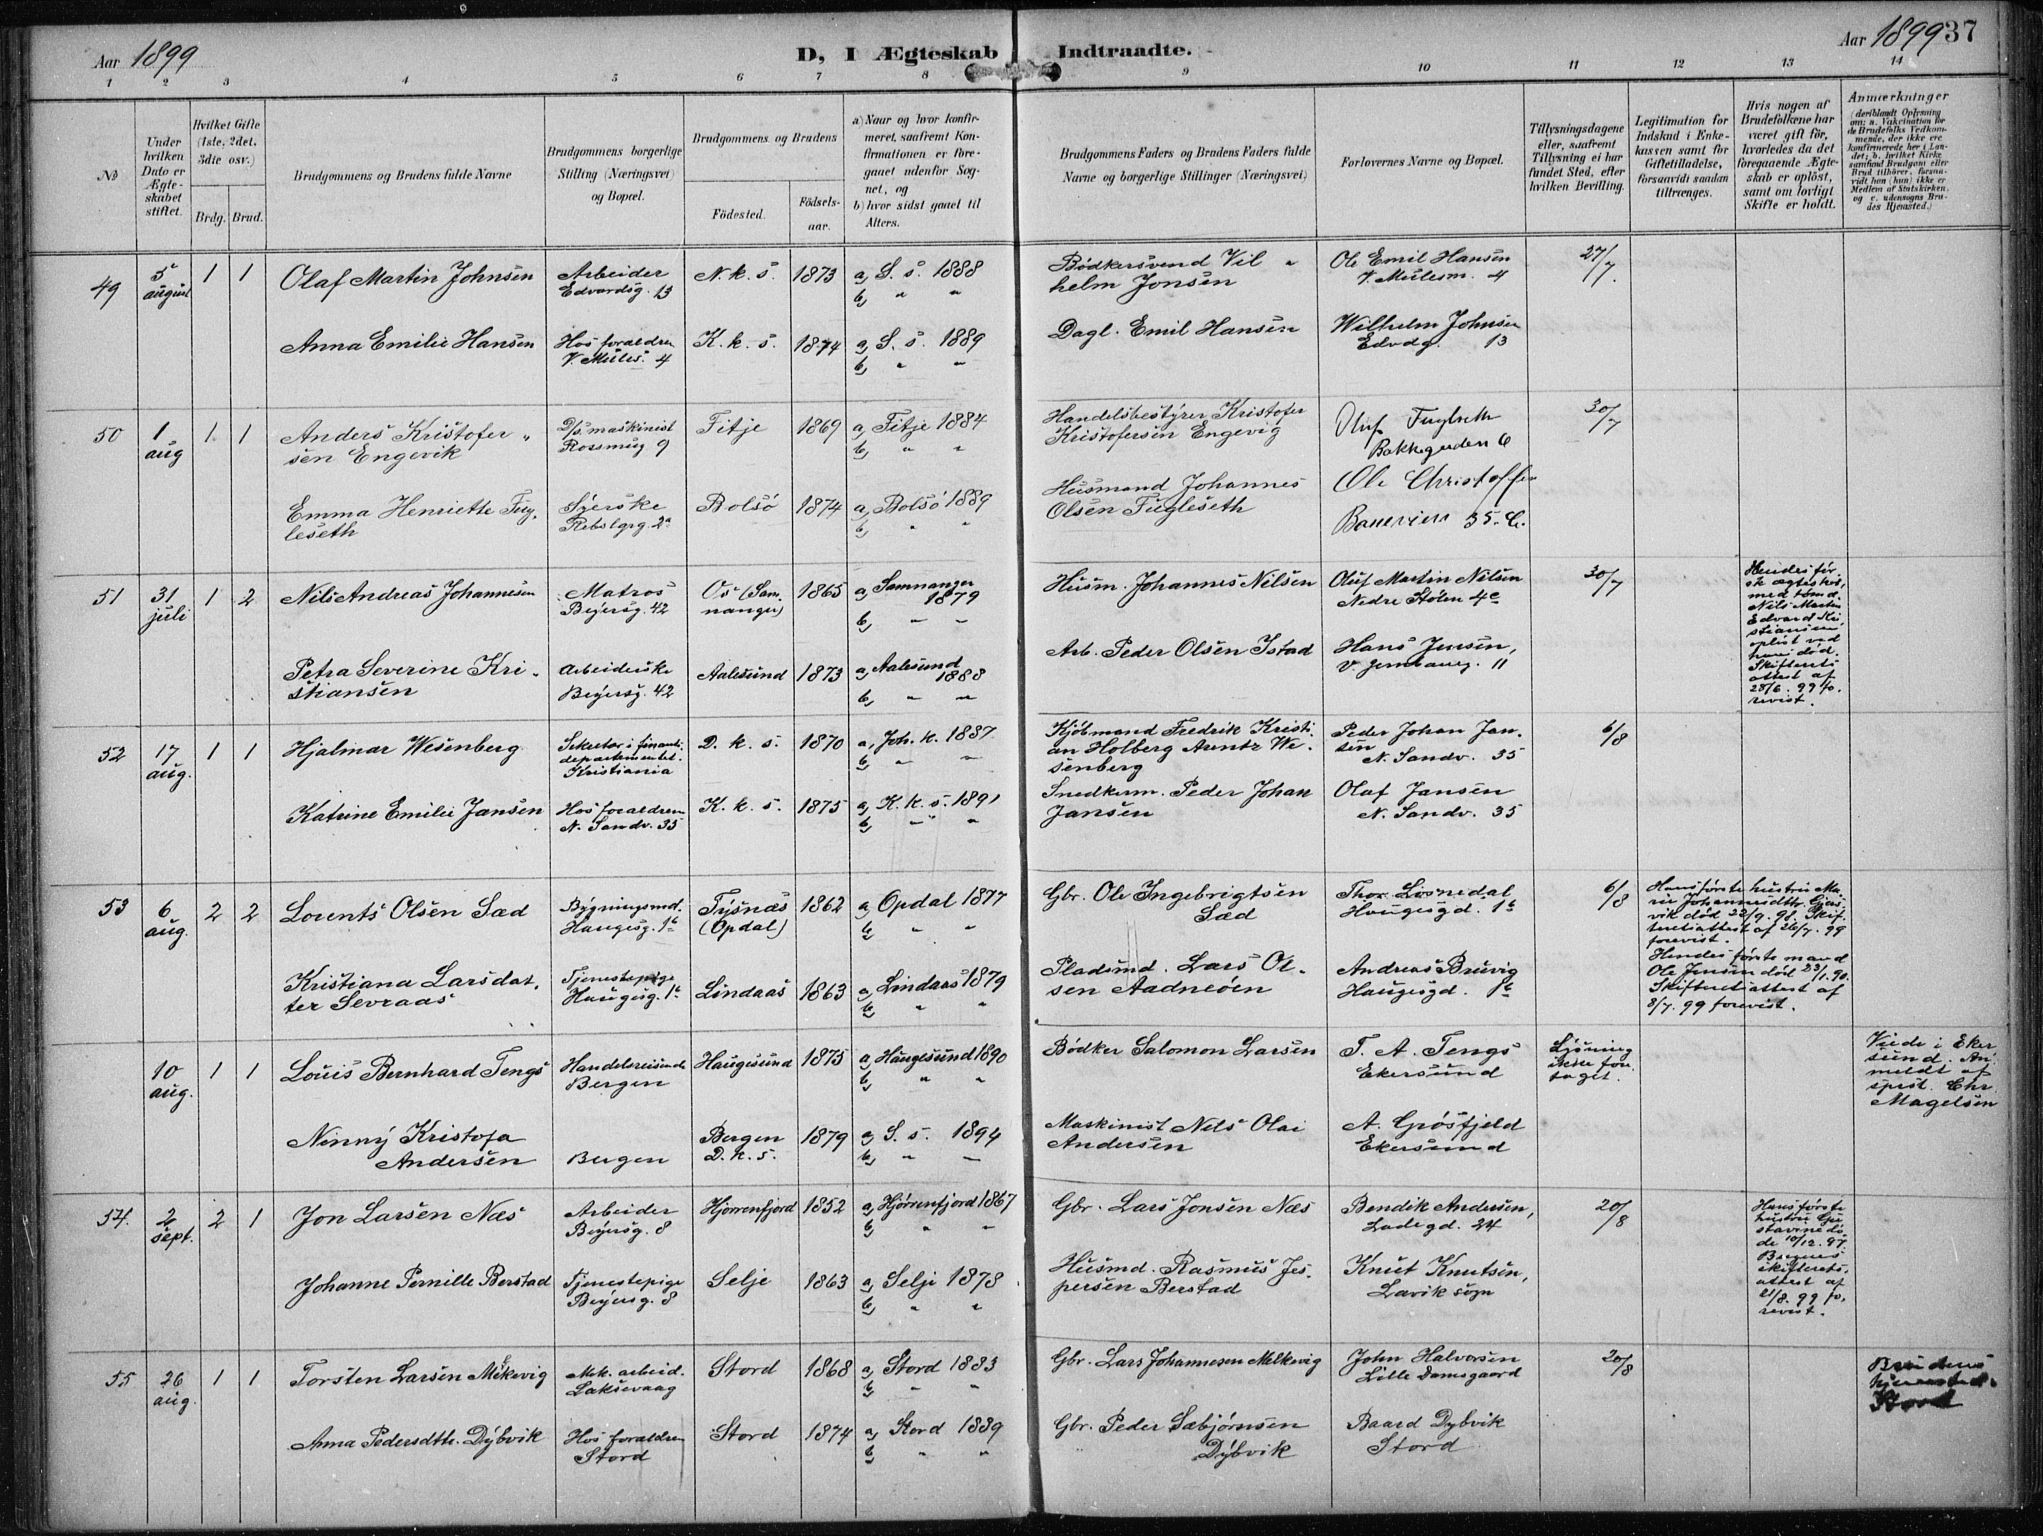 Aar 1899
D, I Ægteskab Indtraadte.
Aar 1899 37
1 2 3 4 5 6 7 8 9 10 11 12 13 14
No
Under hvilken Dato er Ægteskabet stiftet.
Hvilket Gifte (1ste, 2det, 3die osv.)
Brdg. Brud.
Brudgommens og Brudens fulde Navne
Brudgommens borgerlige Stilling (Næringsvei) og Bopæl.
Brudgommens og Brudens
Fødested.
Fødselsaar.
a) Naar og hvor konfirmeret, saafremt Konfirmationen er foregaaet udenfor Sognet, og
b) hvor sidst gaaet til Alters.
Brudgommens Faders og Brudens Faders fulde Navne og borgerlige Stillinger (Næringsvei)
Forlovernes Navne og Bopæl.
Tillysningsdagene eller, saafremt Tillysning ei har fundet Sted, efter hvilken Bevilling.
Legitimation for Indskud i Enkekassen samt for Giftetilladelse, forsaavidt saadan tiltrænges.
Hvis nogen af Brudefolkene har været gift før, hvorledes da det foregaaende Ægteskab er opløst, samt om lovligt Skifte er holdt.
Anmærkninger
49 5 august 1 1 Olaf Martin Johnsen Arbeider Edvardsg. 13 N. k. s. 1873 a, S. s. 1888 b, " " Bødkersvend Vilhelm Jonsen Ole Emil Hansen V. Mülesm. 4 27/7.
Anna Emilie Hansen Hos forældre V. Müles. 4 K. k. s. 1874 a, S. s. 1889 b, " " Dagl. Emil Hansen Wilhelm Johnsen Edvdg. 13
50 1 aug 1 1 Anders Kristofersen Engevik D/s maskinist Rossmug 9 Fitje 1869 a, Fitje 1884 b, " " Handelsbestyrer Kristofer Kristofersen Engevig Oluf Fuglseth Bakkegaden 6 30/7
Emma Henriette Fugleseth Syerske Rebslgrg. 2a Bolsö 1874 a, Bolsö 1889 b, " " Husmand Johannes Olsen Fugleseth Ole Christoffer 35. C.
51 31 juli 1 2 Nils Andreas Johannesen Matros Beyersg. 42 Os (Samnanger) 1865 a, Samnanger 1879 b, " " Husm. Johannes Nilsen Oluf Martin Nilsen Nedre Stølen 4c 30/7 Hendes første ægteskab med tømd. Nils Martin Edvard Kristiansen opløst ved hans død. Skifteretsattest af 28/6. 99 forevist.
Petra Severine Kristiansen Arbeiderske Beyersg. 42 Aalesund 1873 a, Aalesund 1888 b, " " Arb. Peder Olsen Istad Hans Jensen, V. 11
52 17 aug. 1 1 Hjalmar Wesenberg Sekretær i finantsdepartementet. Kristiania D. k. s. 1870 a, Joh. k. 1887 b, " " Kjøbmand Fredrik Kristian Holberg Arentz Wesenberg Peder Johan Jansen N. Sandv. 35 6/8
Katrine Emilie Jansen Hos forældren N. Sandv. 35 K. k. s. 1875 a, K. k. s. 1891 b, " " Snedkerm. Peder Johan Jansen Olaf Jansen N. Sandv. 35
53 6 aug. 2 2 Lorents Olsen Sæd Bygningsmd. Haugesg. 1c Tysnæs (Opdal) 1862 a, Opdal 1877 b, " " Gbr. Ole Ingebrigtsen Sæd Thor Løsnedal Haugesgd. 1c 6/8 Hans første hustru Marie Johannesdtr. død 22/9. 98. Skifteretsattest af 26/7. 99 forevist. Hendes første mand Ole Jensen død 23/1. 90. Skifteretsattest af 8/7. 99 forevist.
Kristiana Larsdatter Sevraas Tjenestepige Haugesg. 1c Lindaas 1863 a, Lindaas 1879 b, " " Pladsmd. Lars Olsen Aadneöen Andreas Bruvig Haugesgd. 1c
10 aug. 1 1 Louis Bernhard Tengs Handelsreisende Bergen Haugesund 1875 a, Haugesund 1890 b, " " Bødker Salomon Larsen T. A. Tengs Ekersund Lysning ikke foretaget. Viede i Ekersund. Anmeldt af sprst. Chr. Magelsen
Ninny Kristofa Andersen Bergen Bergen D. k. s. 1879 a, S. s. 1894 b, " " Maskinist Nils Olai Andersen A. Grøsfjeld Ekersund
54. 2 sept. 2 1 Jon Larsen Næs Arbeider Beyersg. 8 Hjørrenfjord 1852 a, Hjørrenfjord 1867 b, " " Gbr. Lars Jonsen Næs Bendik Andersen, Ladegd. 24 20/8 Hans første hustru Gustavine døde 10/12. 97. Bergens skifterets. attest af 21/8. 99 forevist.
Johanne Pernille Berstad Tjenestepige Beyersg. 8 Selje 1863 a, Selje 1878 b, " " Husmd. Rasmus Jespersen Berstad Knut Knutsen, Lavik sogn
55 26 aug. 1 1 Torsten Larsen Melkevig Mek. arbeid. Laksevaag Stord 1868 a, Stord 1883 b, " " Gbr. Lars Johannesen Melkevig John Halvorsen Lille Damsgaard 20/8 Brudens hjemsted. Stord
Anna Pedersdtr. Dybvik Hos forældren Stord Stord 1874 a, Stord 1889 b, " " Gbr. Peder Sæbjørnsen Dybvik Baard Dybvik Stord